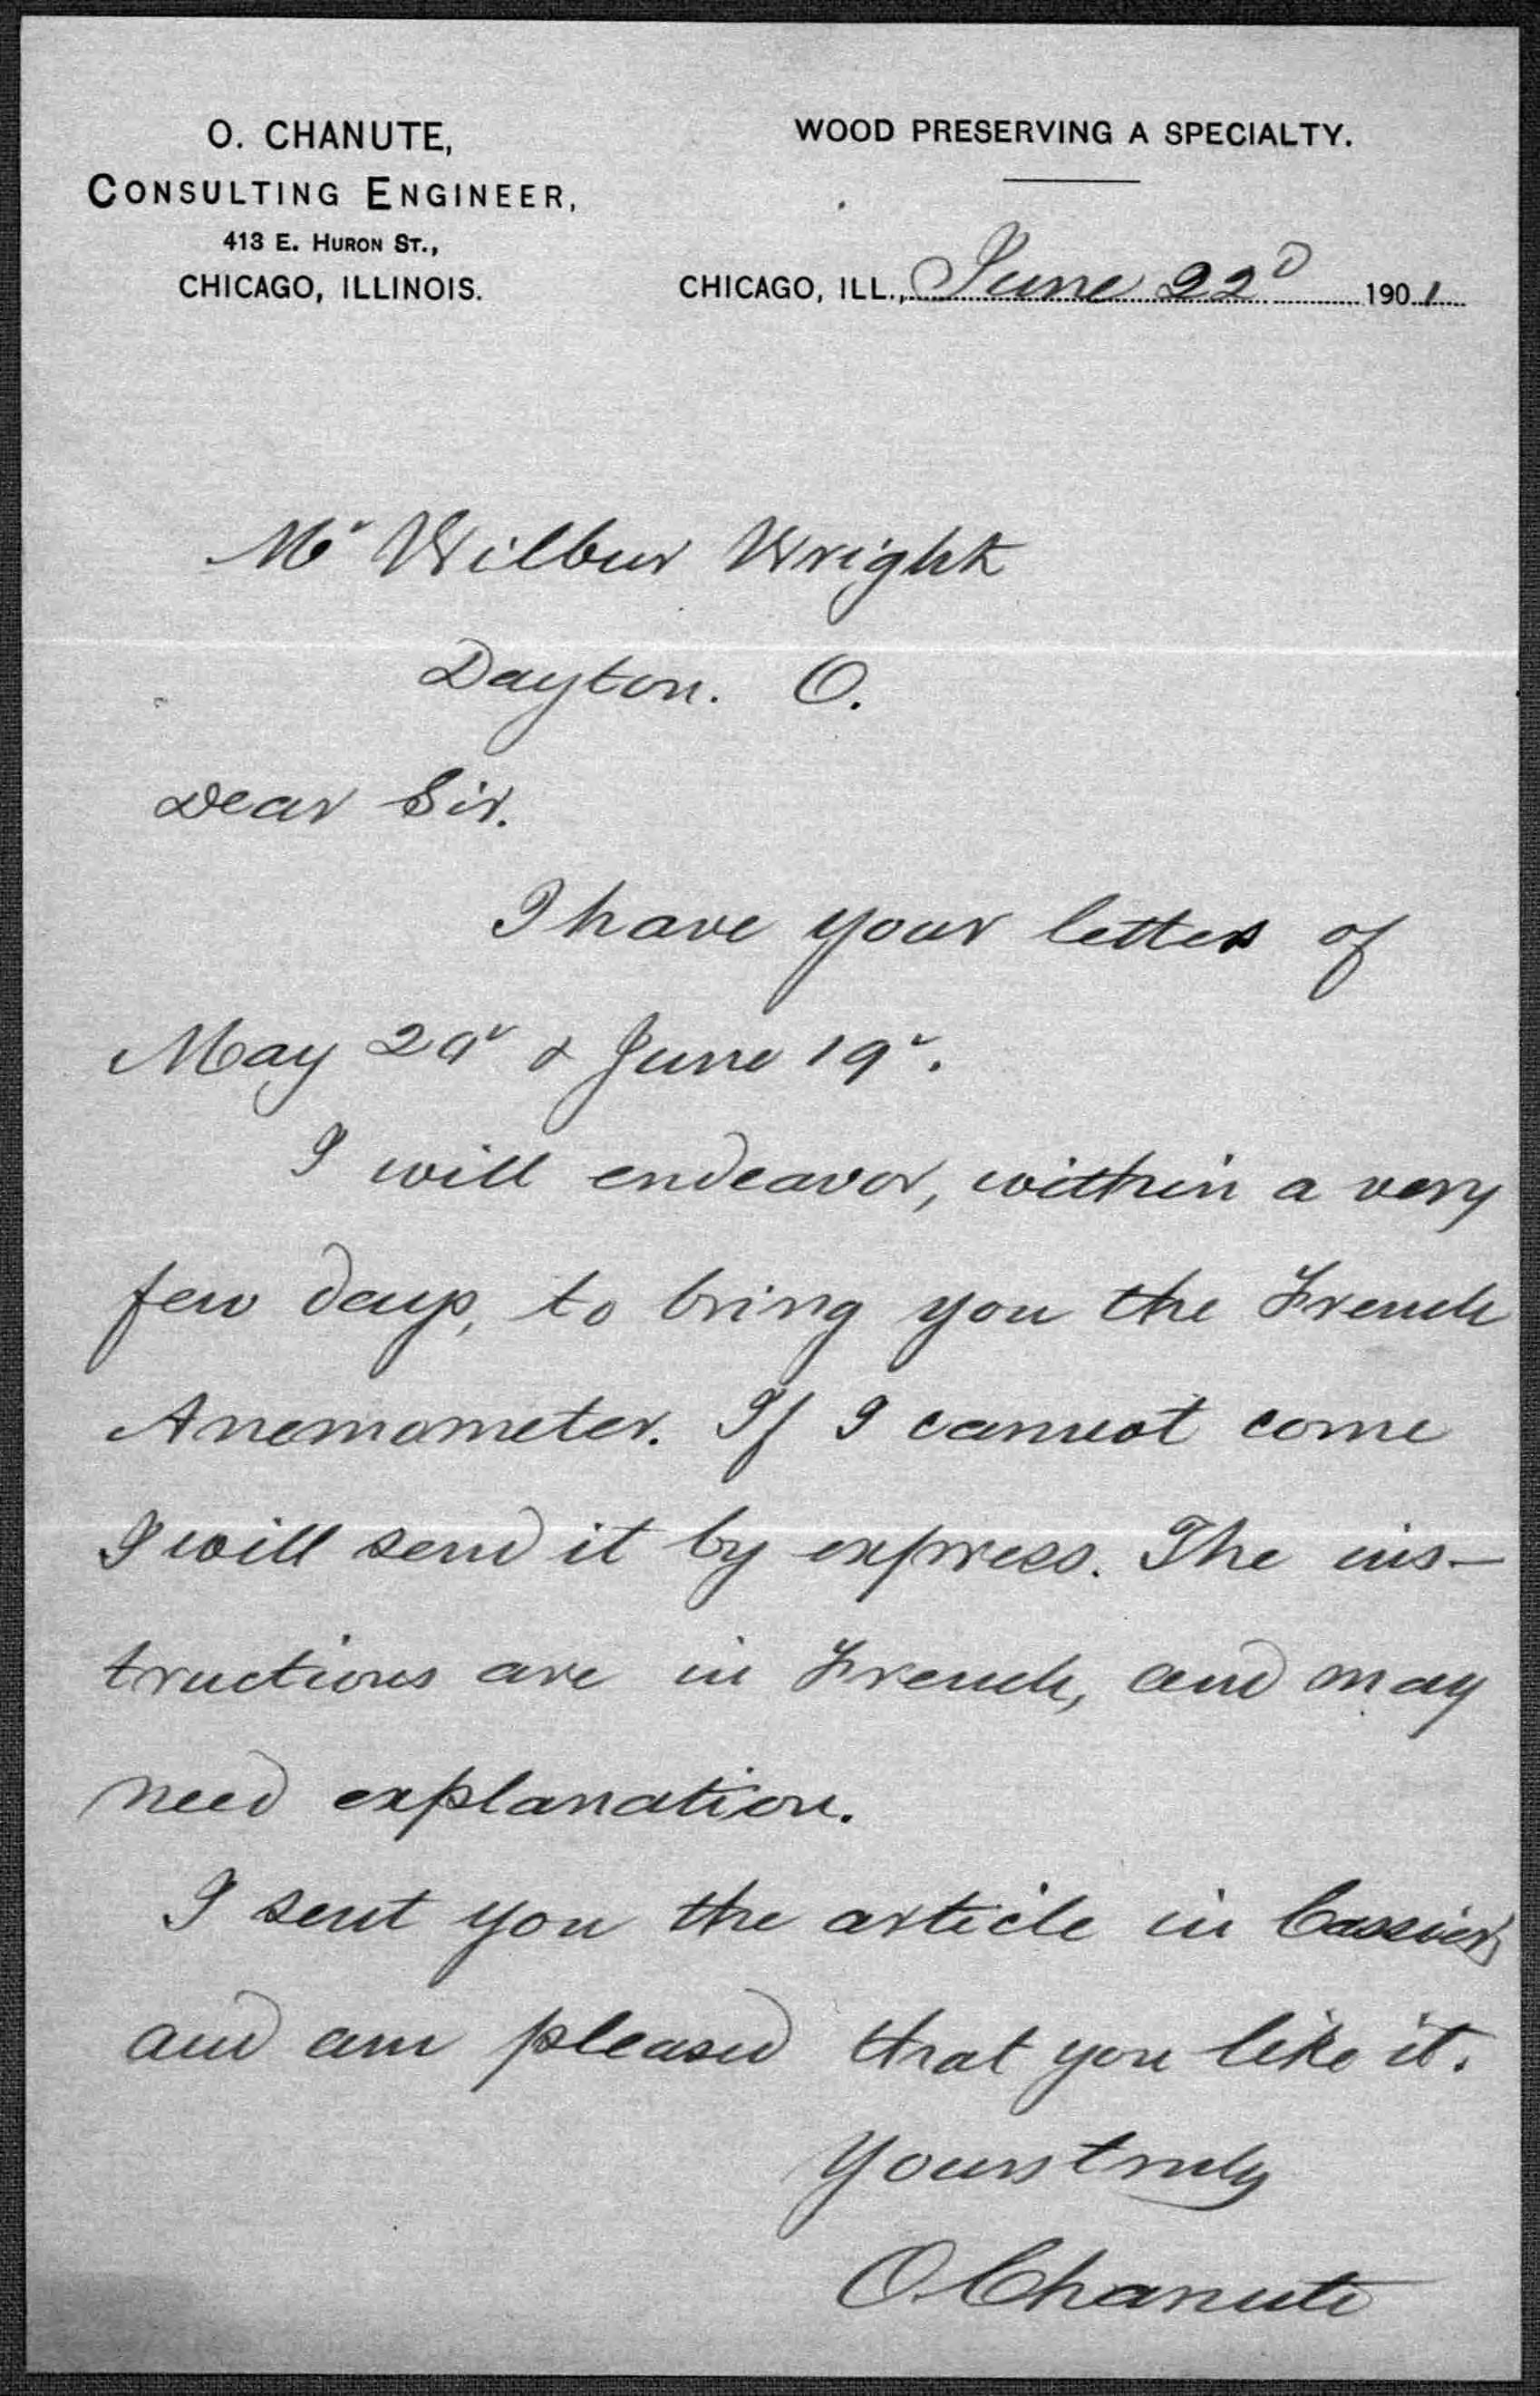 O. CHANUTE,
CONSULTING ENGINEER,
413 E. HURON ST.,
CHICAGO, ILLINOIS.
WOOD PRESERVING A SPECIALTY.
CHICAGO, ILL., June 22d 1901
Mr Wilbur Wright
Dayton. O.
Dear Sir.
I have your letters of
May 29" & June 19".
I will endeavor, within a very
few days, to bring you the French
Anemometer. If I cannot come
I will send it by express. The ins-
tructions are in French, and may
need explanation.
I sent you the article in Cassier,
and am pleased that you like it.
Yours truly
O. Chanute